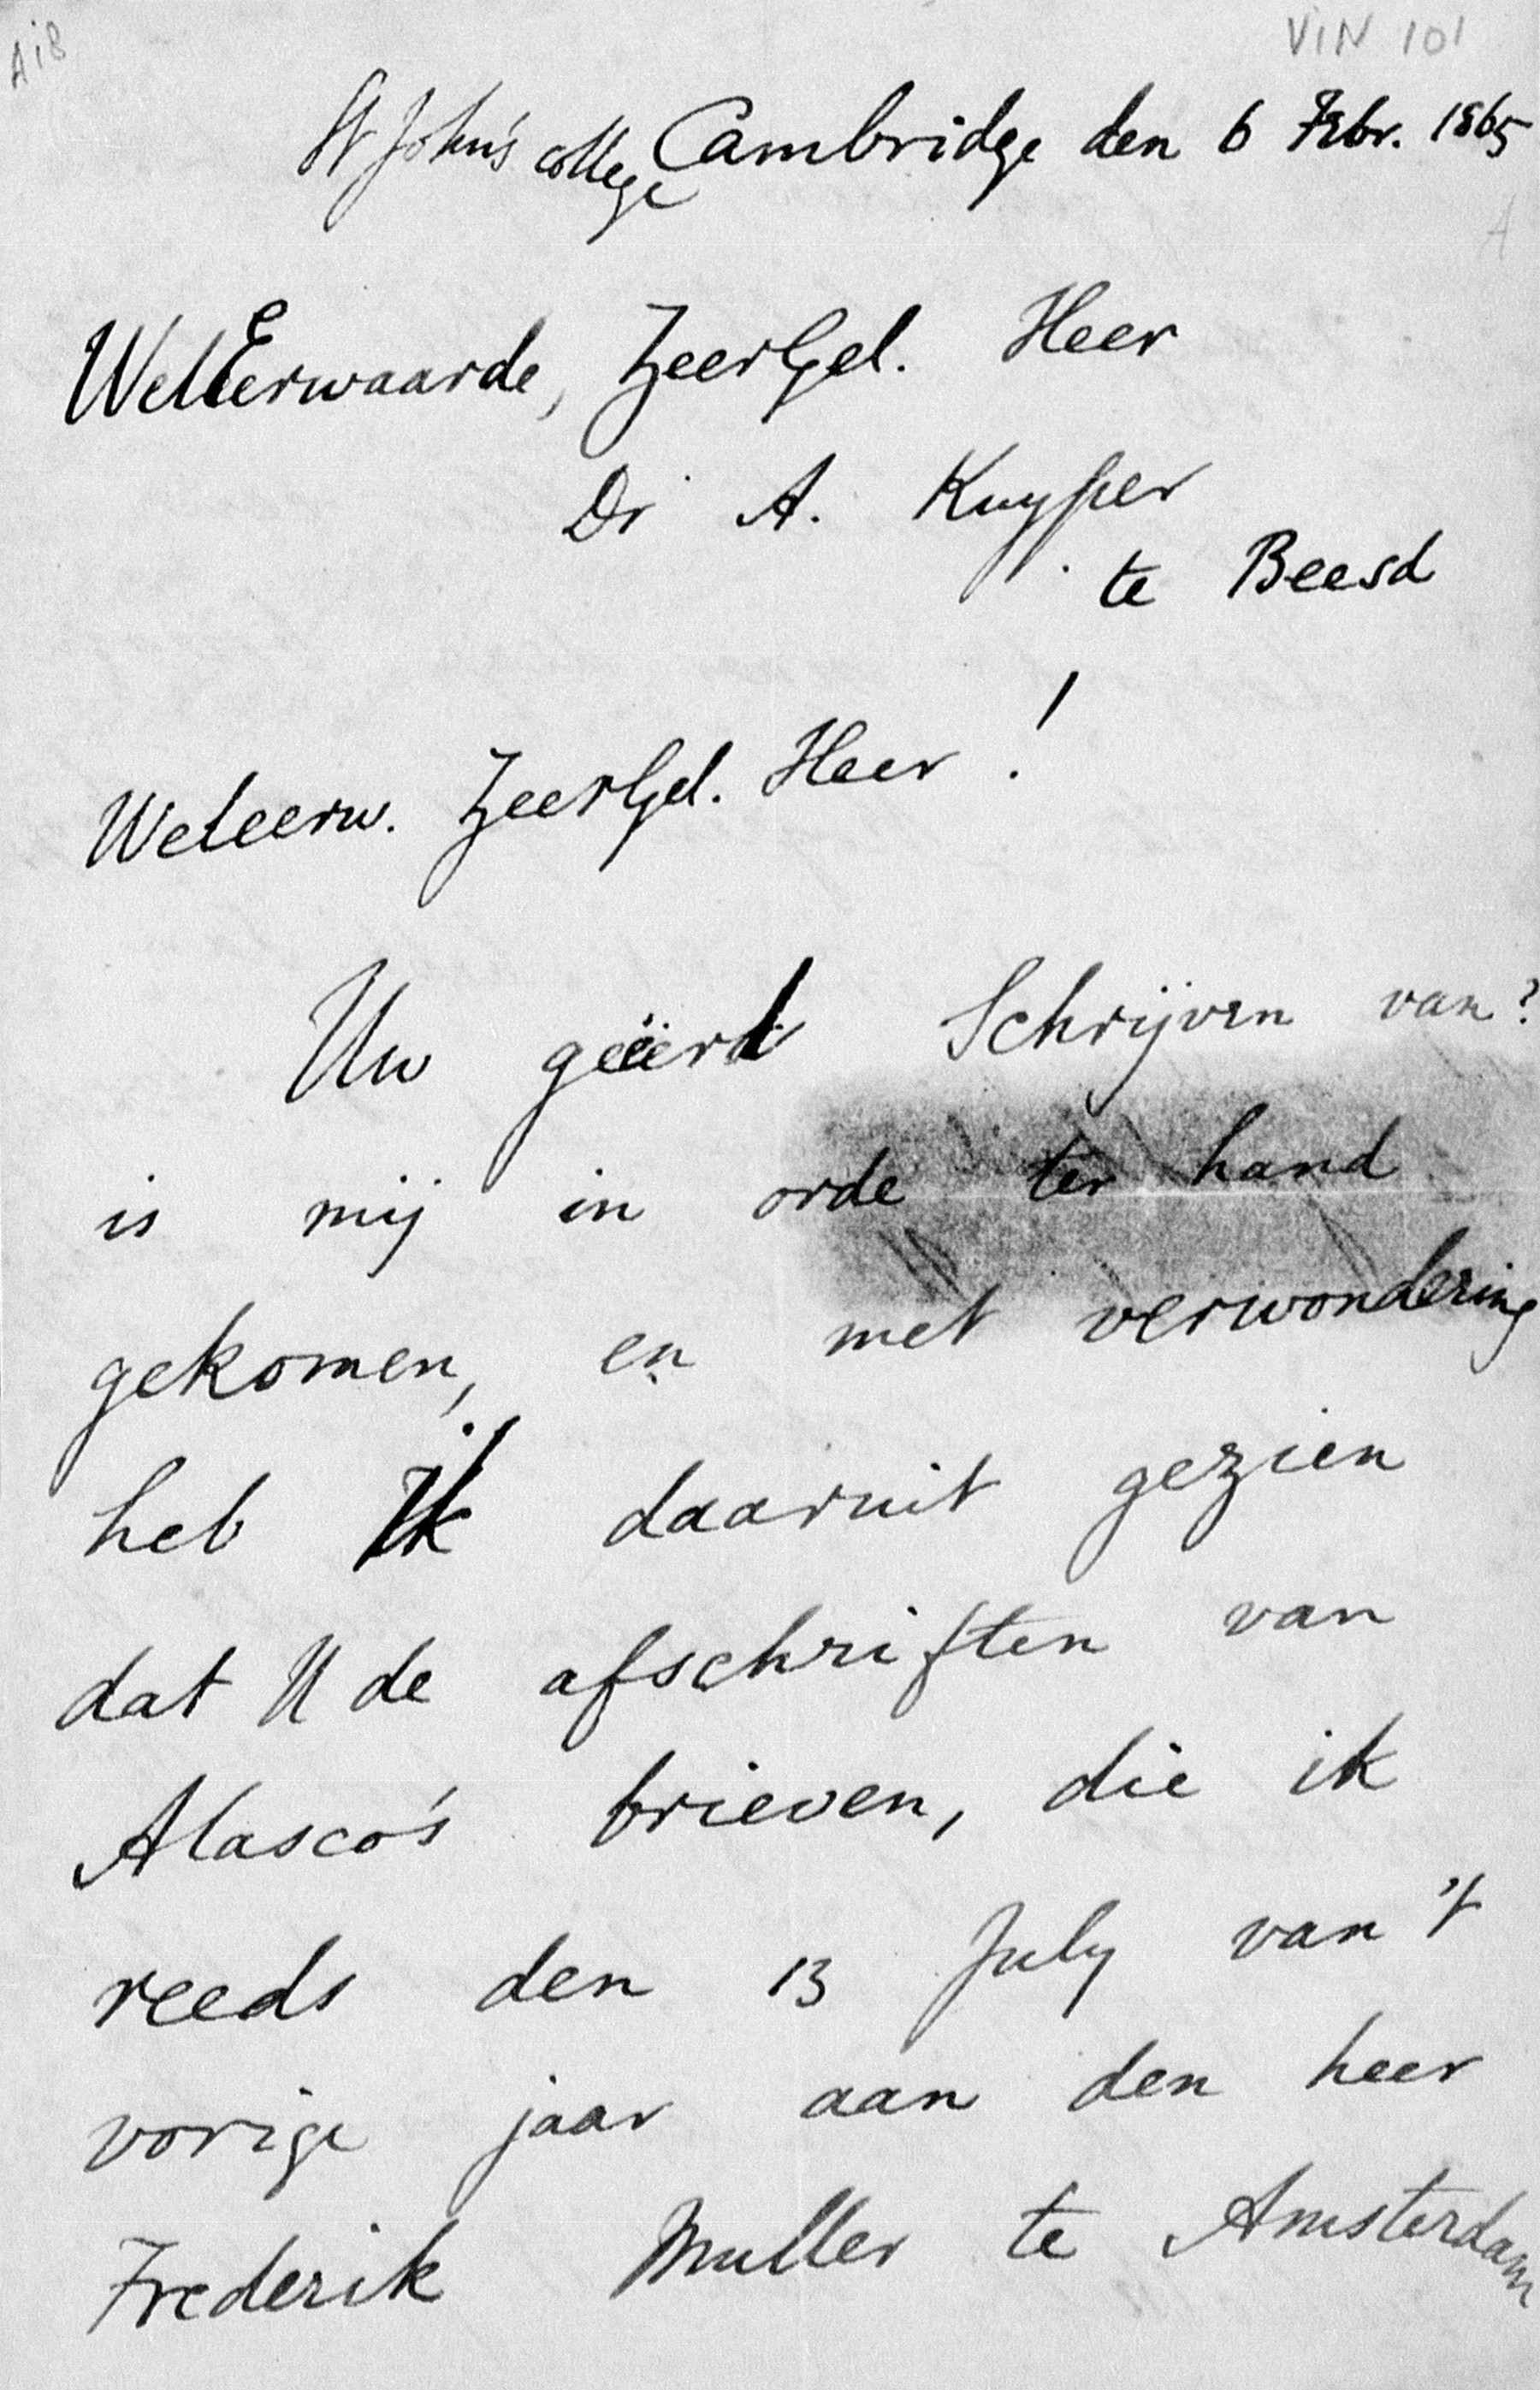 Ai8
VIN 101
St John's college Cambridge den 6 Febr. 1865
A
WelEerwaarde, ZeerGel. Heer
Dr A. Kuyper
te Beesd
Weleerw. ZeerGel. Heer!
Uw geëerd Schrijven van?
is mij in orde ter hand
gekomen, en met verwondering
heb Ik daaruit gezien
dat U de afschriften van
Alasco's brieven, die ik
reeds den 13 July van 't
vorige jaar aan den heer
Frederik Muller te Amsterdam